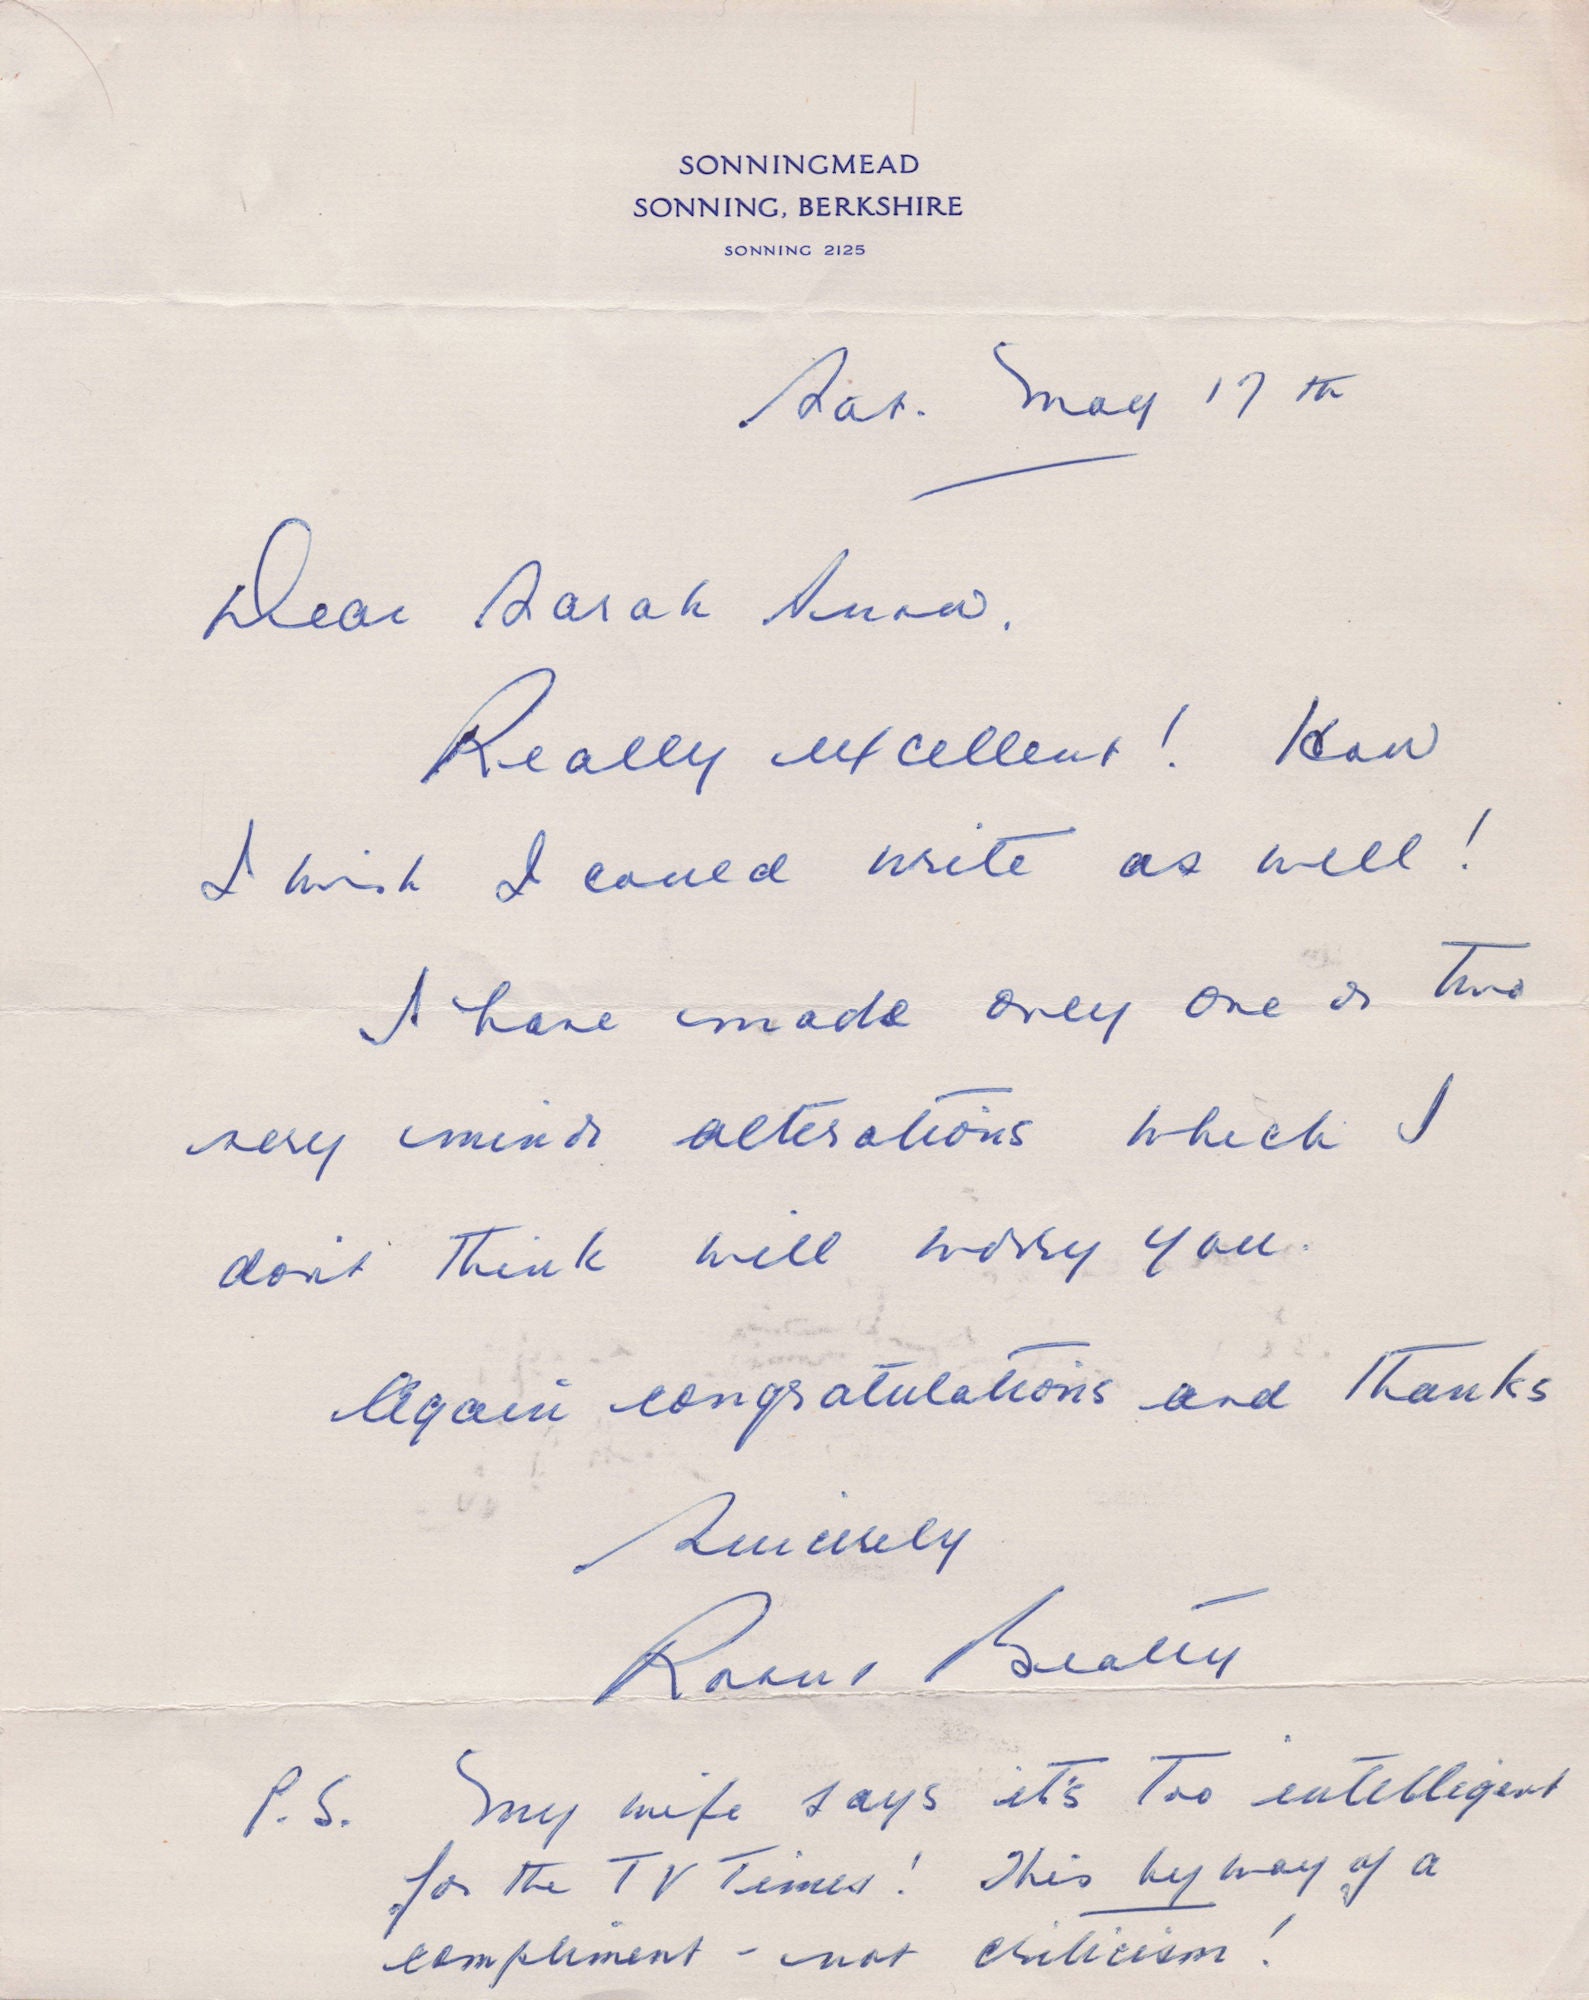 SONNINGMEAD
SONNING, BERKSHIRE
SONNING 2125
Sat. May 17th
Dear Sarah
Really excellent! How
I wish I could write as well!
I have made only one or two
very minor alterations which I
don't think will worry you.
Again congratulations and thanks
Sincerely
Beatty
P.S. My wife says it's too intelligent
for the TV Times! This by way of a
compliment - not criticism!